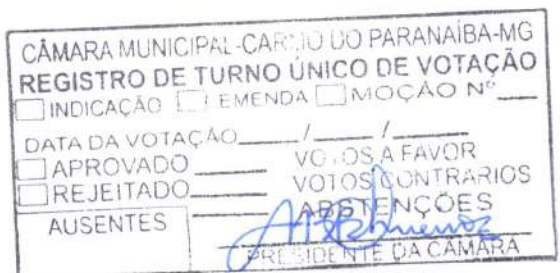 CÂMARA MUNICIPAL-CARMO DO PARANAÍBA-MG
REGISTRO DE TURNO ÚNICO DE VOTAÇÃO
INDICAÇÃO EMENDA MOÇÃO Nº
DATA DA VOTAÇÃO / /
APROVADO VOTOS A FAVOR
REJEITADO VOTOS CONTRÁRIOS
AUSENTES ABSTENÇÕES
PRESIDENTE DA CÂMARA